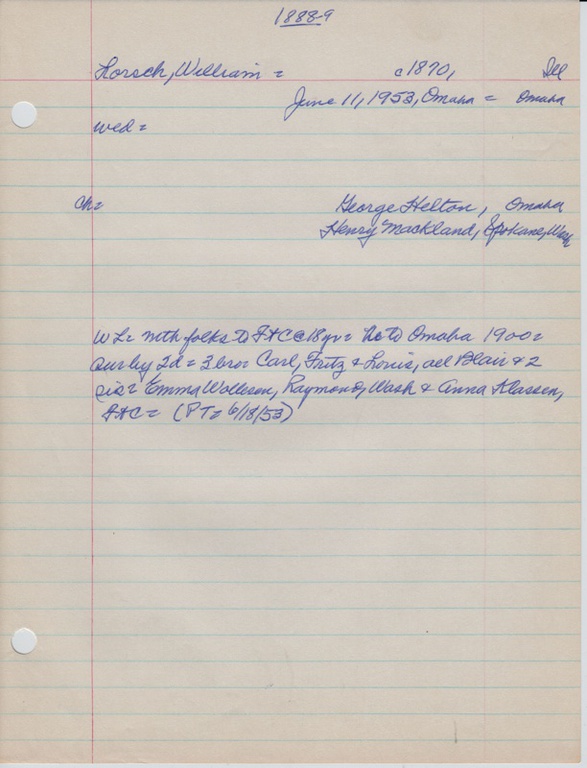 1888-9
Lorsch, William = c1870, Ill
June 11, 1953, Omaha = Omaha
wed =
Ch=
George Helton, Omaha
Henry Mackland, Spokane, Wash
WL = with folks to Ft C @ 18 yr = to Omaha 1900 =
sur by 2d = 3 bro = Carl, Fritz & Louis, all Blair & 2
sis = Emma Wolleson, Raymond, Wash & Anna Klassen,
Ft C = (PT = 6/18/53)